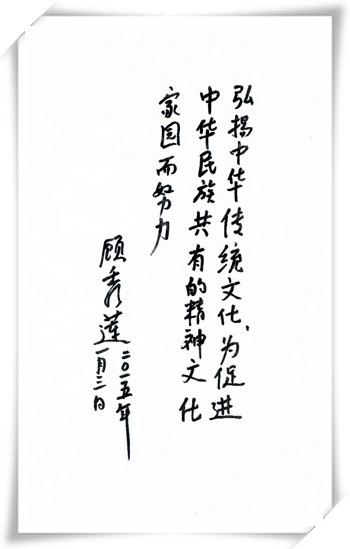 弘揚中华传统文化，为促进
中华民族共有的精神文化
家园而努力
顾秀莲
二〇一五年
一月三日